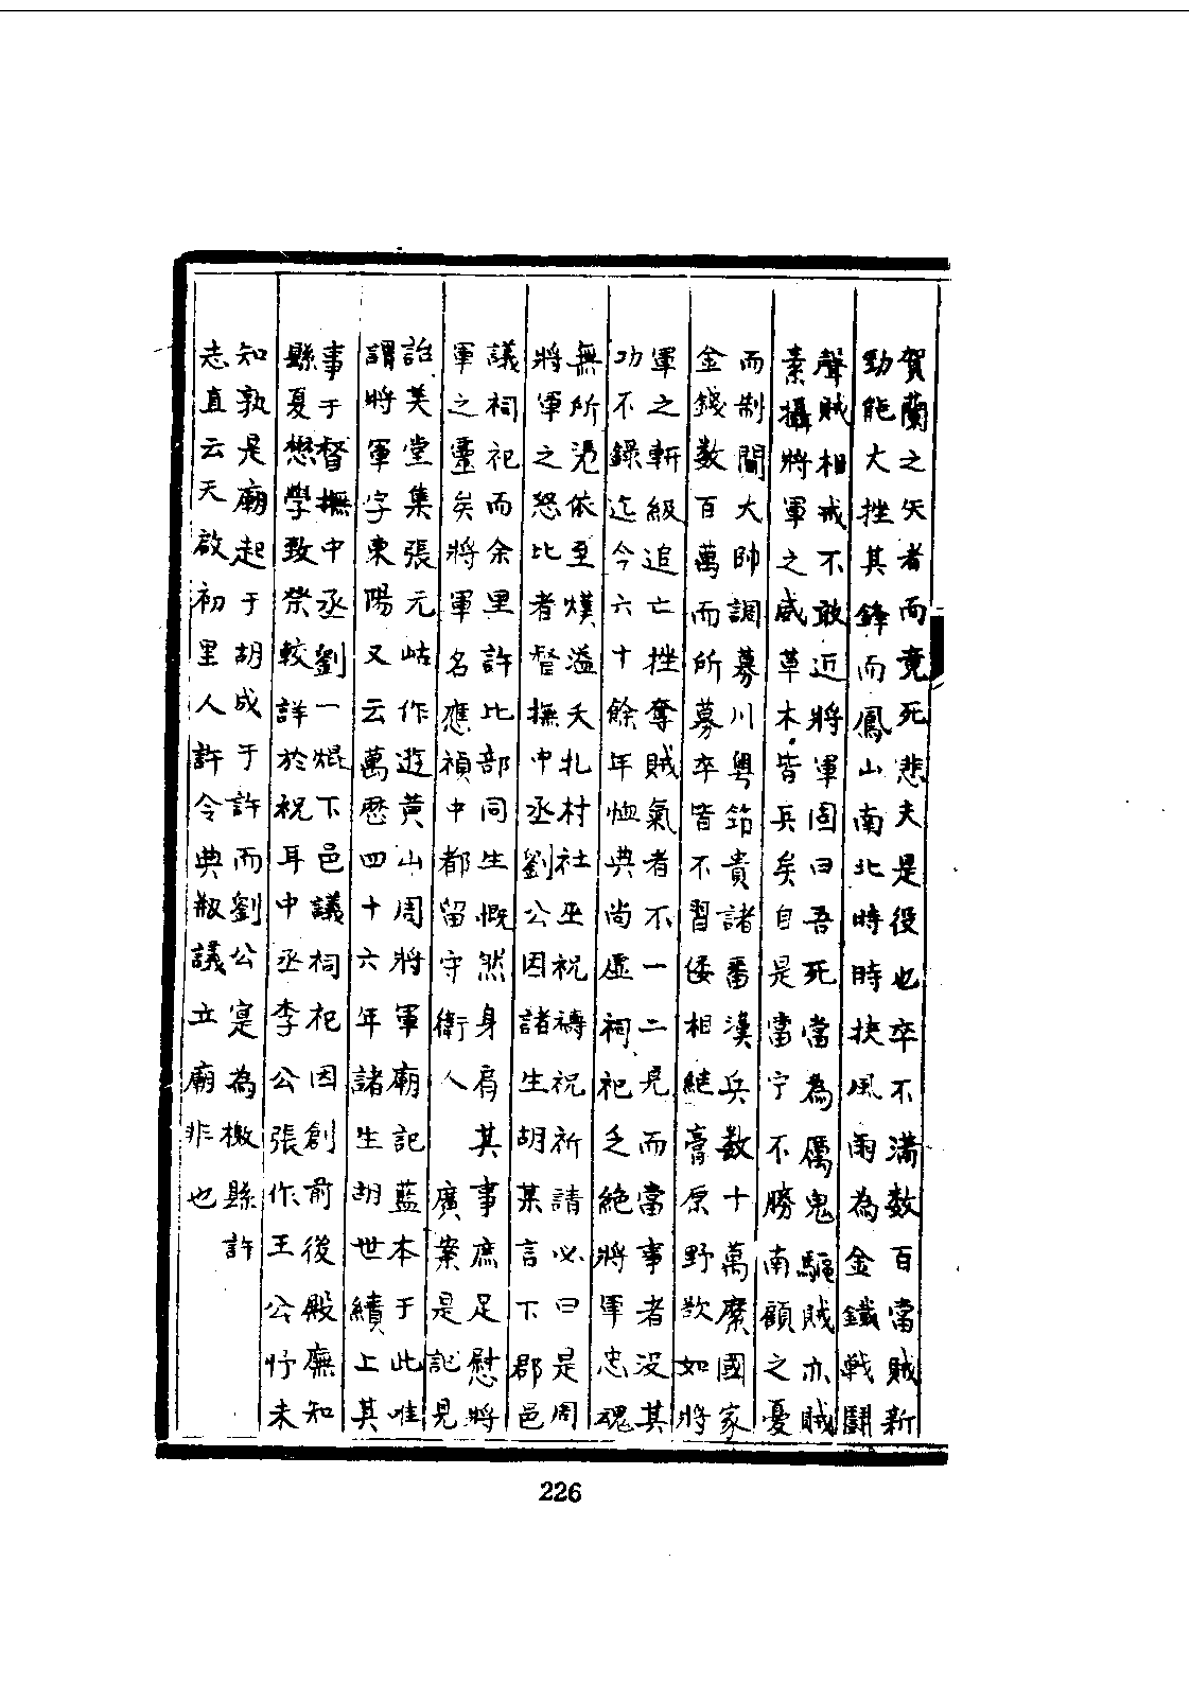 賀蘭之矢者而竟死悲夫是役也卒不滿数百當賊新
勁能大挫其鋒而鳳山南北時時挟風雨為金鐵戰鬪
聲賊相戒不敢近將軍固曰吾死當為厲鬼驅賊亦賊
素攝將軍之威草木皆兵矣自是當宁不勝南顧之憂
而制閫大帥調募川粤筯貴諸番漢兵数十萬縻國家
金錢数百萬而所募卒皆不習倭相継膏原野欲如將
軍之斬級追亡挫奪賊氣者不一二見而當事者没其
功不錄迄今六十餘年恤典尚虚祠祀乏絶將軍忠魂
無所憑依至熯溢夭札村社巫祝禱祝祈請必曰是周
將軍之怒比者督撫中丞劉公因諸生胡某言下郡邑
議祠祀而余里許比部同生慨然身肩其事庶足慰將
軍之靈矣將軍名應禎中都留守衛人 廣案是記見
詒美堂集張元岵作遊黄山周將軍廟記藍本于此唯
謂將軍字東陽又云萬厯四十六年諸生胡世續上其
事于督撫中丞劉一焜下邑議祠祀因創前後殿廡知
縣夏懋學致祭較詳於祝耳中丞李公張作王公忬未
知孰是廟起于胡成于許而劉公寔為檄縣許
志直云天啟初里人許令典叛議立廟非也
226